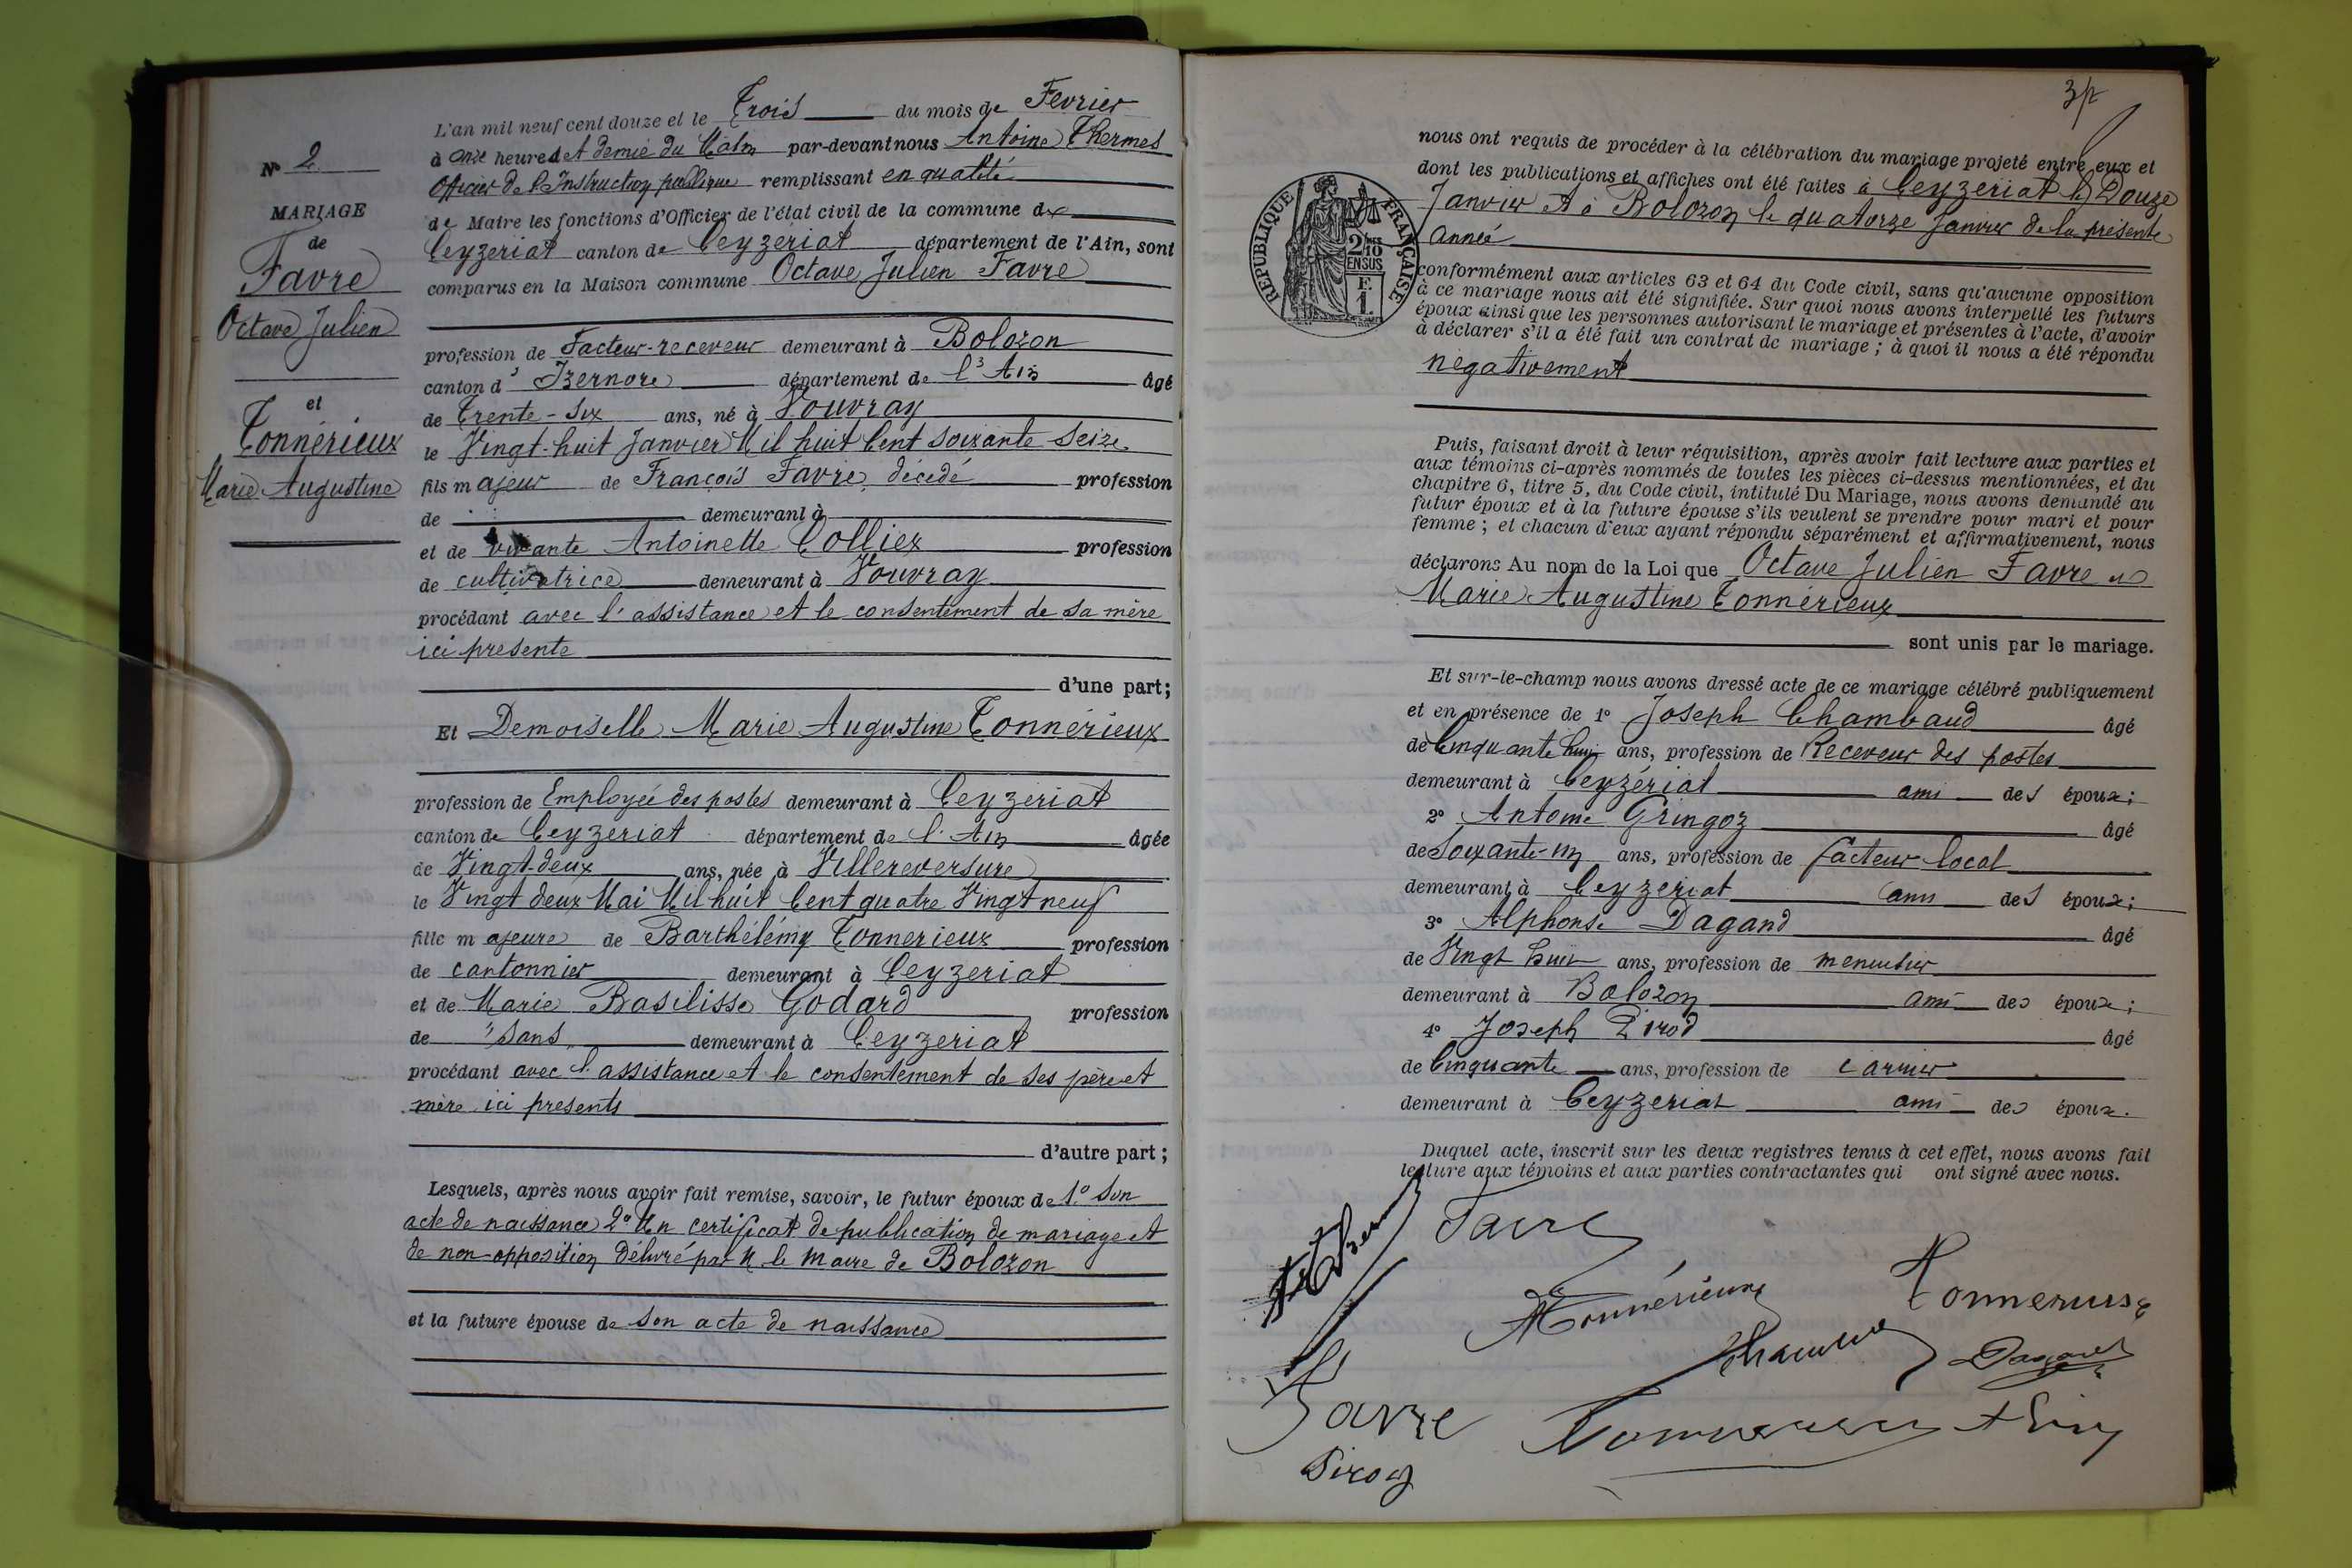 N° 2
MARIAGE
de
Favre
Octave Julien
et
Tonnérieux
Marie Augustine
L'an mil neuf cent douze et le Trois du mois de Fevrier
à onze heures et demie du Matin par-devant nous Antoine Thermes
Officier de l'Instruction publique remplissant en qualité
de Maire les fonctions d'Officier de l'état civil de la commune de
Ceyzeriat canton de Ceyzeriat département de l'Ain, sont
comparus en la Maison commune Octave Julien Favre
profession de Facteur-receveur demeurant à Bolozon
canton d' Izernore département de l'Ain âgé
de Trente-six ans, né à Vouvray
le Vingt-huit Janvier Mil huit Cent soixante Seize
fils majeur de François Favre, décédé profession
de demeurant à
et de vivante Antoinette Colliex profession
de cultivatrice demeurant à Vouvray
procédant avec l'assistance et le consentement de sa mère
ici presente
d'une part;
Et Demoiselle Marie Augustine Tonnérieux
profession de Employée des postes demeurant à Ceyzeriat
canton de Ceyzeriat département de l'Ain âgée
de Vingt-deux ans, née à Villereversure
le Vingt deux Mai Mil huit Cent quatre Vingt neuf
fille majeure de Barthélémy Tonnerieux profession
de cantonnier demeurant à Ceyzeriat
et de Marie Basilisse Godard profession
de "Sans" demeurant à Ceyzeriat
procédant avec l'assistance et le consentement de ses père et
mère ici presents
d'autre part;
Lesquels, après nous avoir fait remise, savoir, le futur époux de 1° Son
acte de naissance 2° Un certificat de publication de mariage et
de non-opposition délivré par M le Maire de Bolozon
et la future épouse de son acte de naissance
nous ont requis de procéder à la célébration du mariage projeté entre eux et
dont les publications et affiches ont été faites à Ceyzeriat le Douze
Janvier et à Bolozon le quatorze Janvier de la présente
année
REPUBLIQUE FRANÇAISE
conformément aux articles 63 et 64 du Code civil, sans qu'aucune opposition
à ce mariage nous ait été signifiée. Sur quoi nous avons interpellé les futurs
époux ainsi que les personnes autorisant le mariage et présentes à l'acte, d'avoir
à déclarer s'il a été fait un contrat de mariage; à quoi il nous a été répondu
négativement
Puis, faisant droit à leur réquisition, après avoir fait lecture aux parties et
aux témoins ci-après nommés de toutes les pièces ci-dessus mentionnées, et du
chapitre 6, titre 5, du Code civil, intitulé Du Mariage, nous avons demandé au
futur époux et à la future épouse s'ils veulent se prendre pour mari et pour
femme; et chacun d'eux ayant répondu séparément et affirmativement, nous
déclarons Au nom de la Loi que Octave Julien Favre et
Marie Augustine Tonnérieux
sont unis par le mariage.
Et sur-le-champ nous avons dressé acte de ce mariage célébré publiquement
et en présence de 1° Joseph Chambaud âgé
de Cinquante huit ans, profession de Receveur des postes
demeurant à Ceyzériat ami des époux;
2° Antoine Gringoz âgé
de Soixante-un ans, profession de facteur local
demeurant à Ceyzeriat ami des époux;
3° Alphonse Dagand âgé
de Vingt huit ans, profession de menuisier
demeurant à Bolozon ami des époux;
4° Joseph Pirod âgé
de Cinquante ans, profession de carrier
demeurant à Ceyzeriat ami des époux.
Duquel acte, inscrit sur les deux registres tenus à cet effet, nous avons fait
lecture aux témoins et aux parties contractantes qui ont signé avec nous.
Favre
Tonnérieux
Dagand
Favre